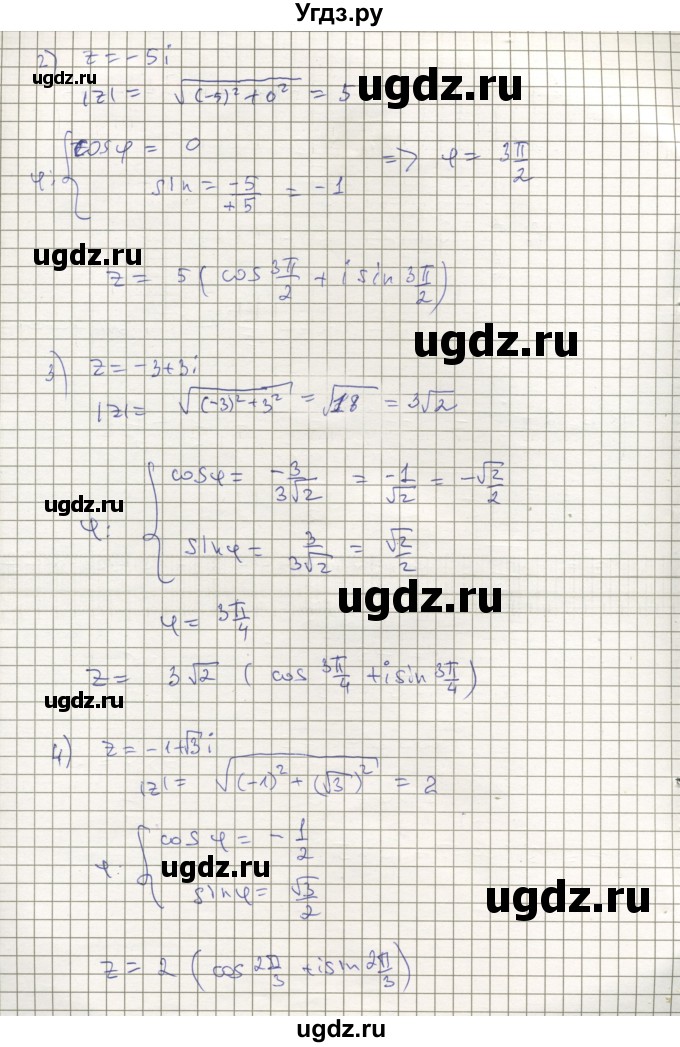 Угдз.ру
2) z = -5i
ugdz.ru
|z| = √((-5)² + 0²) = 5
ugdz.ru
φ: { cosφ = 0
sin = -5/+5 = -1
=> φ = 3π/2
ugdz.ru
z = 5 ( cos 3π/2 + i sin 3π/2 )
ugdz.ru
3) z = -3+3i
|z| = √((-3)² + 3²) = √18 = 3√2
φ: { cosφ = -3/3√2 = -1/√2 = -√2/2
ugdz.ru
sinφ = 3/3√2 = √2/2
ugdz.ru
φ = 3π/4
z = 3√2 ( cos 3π/4 + i sin 3π/4 )
ugdz.ru
4) z = -1+√3i
|z| = √((-1)² + (√3)²) = 2
φ: { cosφ = -1/2
ugdz.ru
sinφ = √3/2
ugdz.ru
z = 2 ( cos 2π/3 + i sin 2π/3 )
ugdz.ru